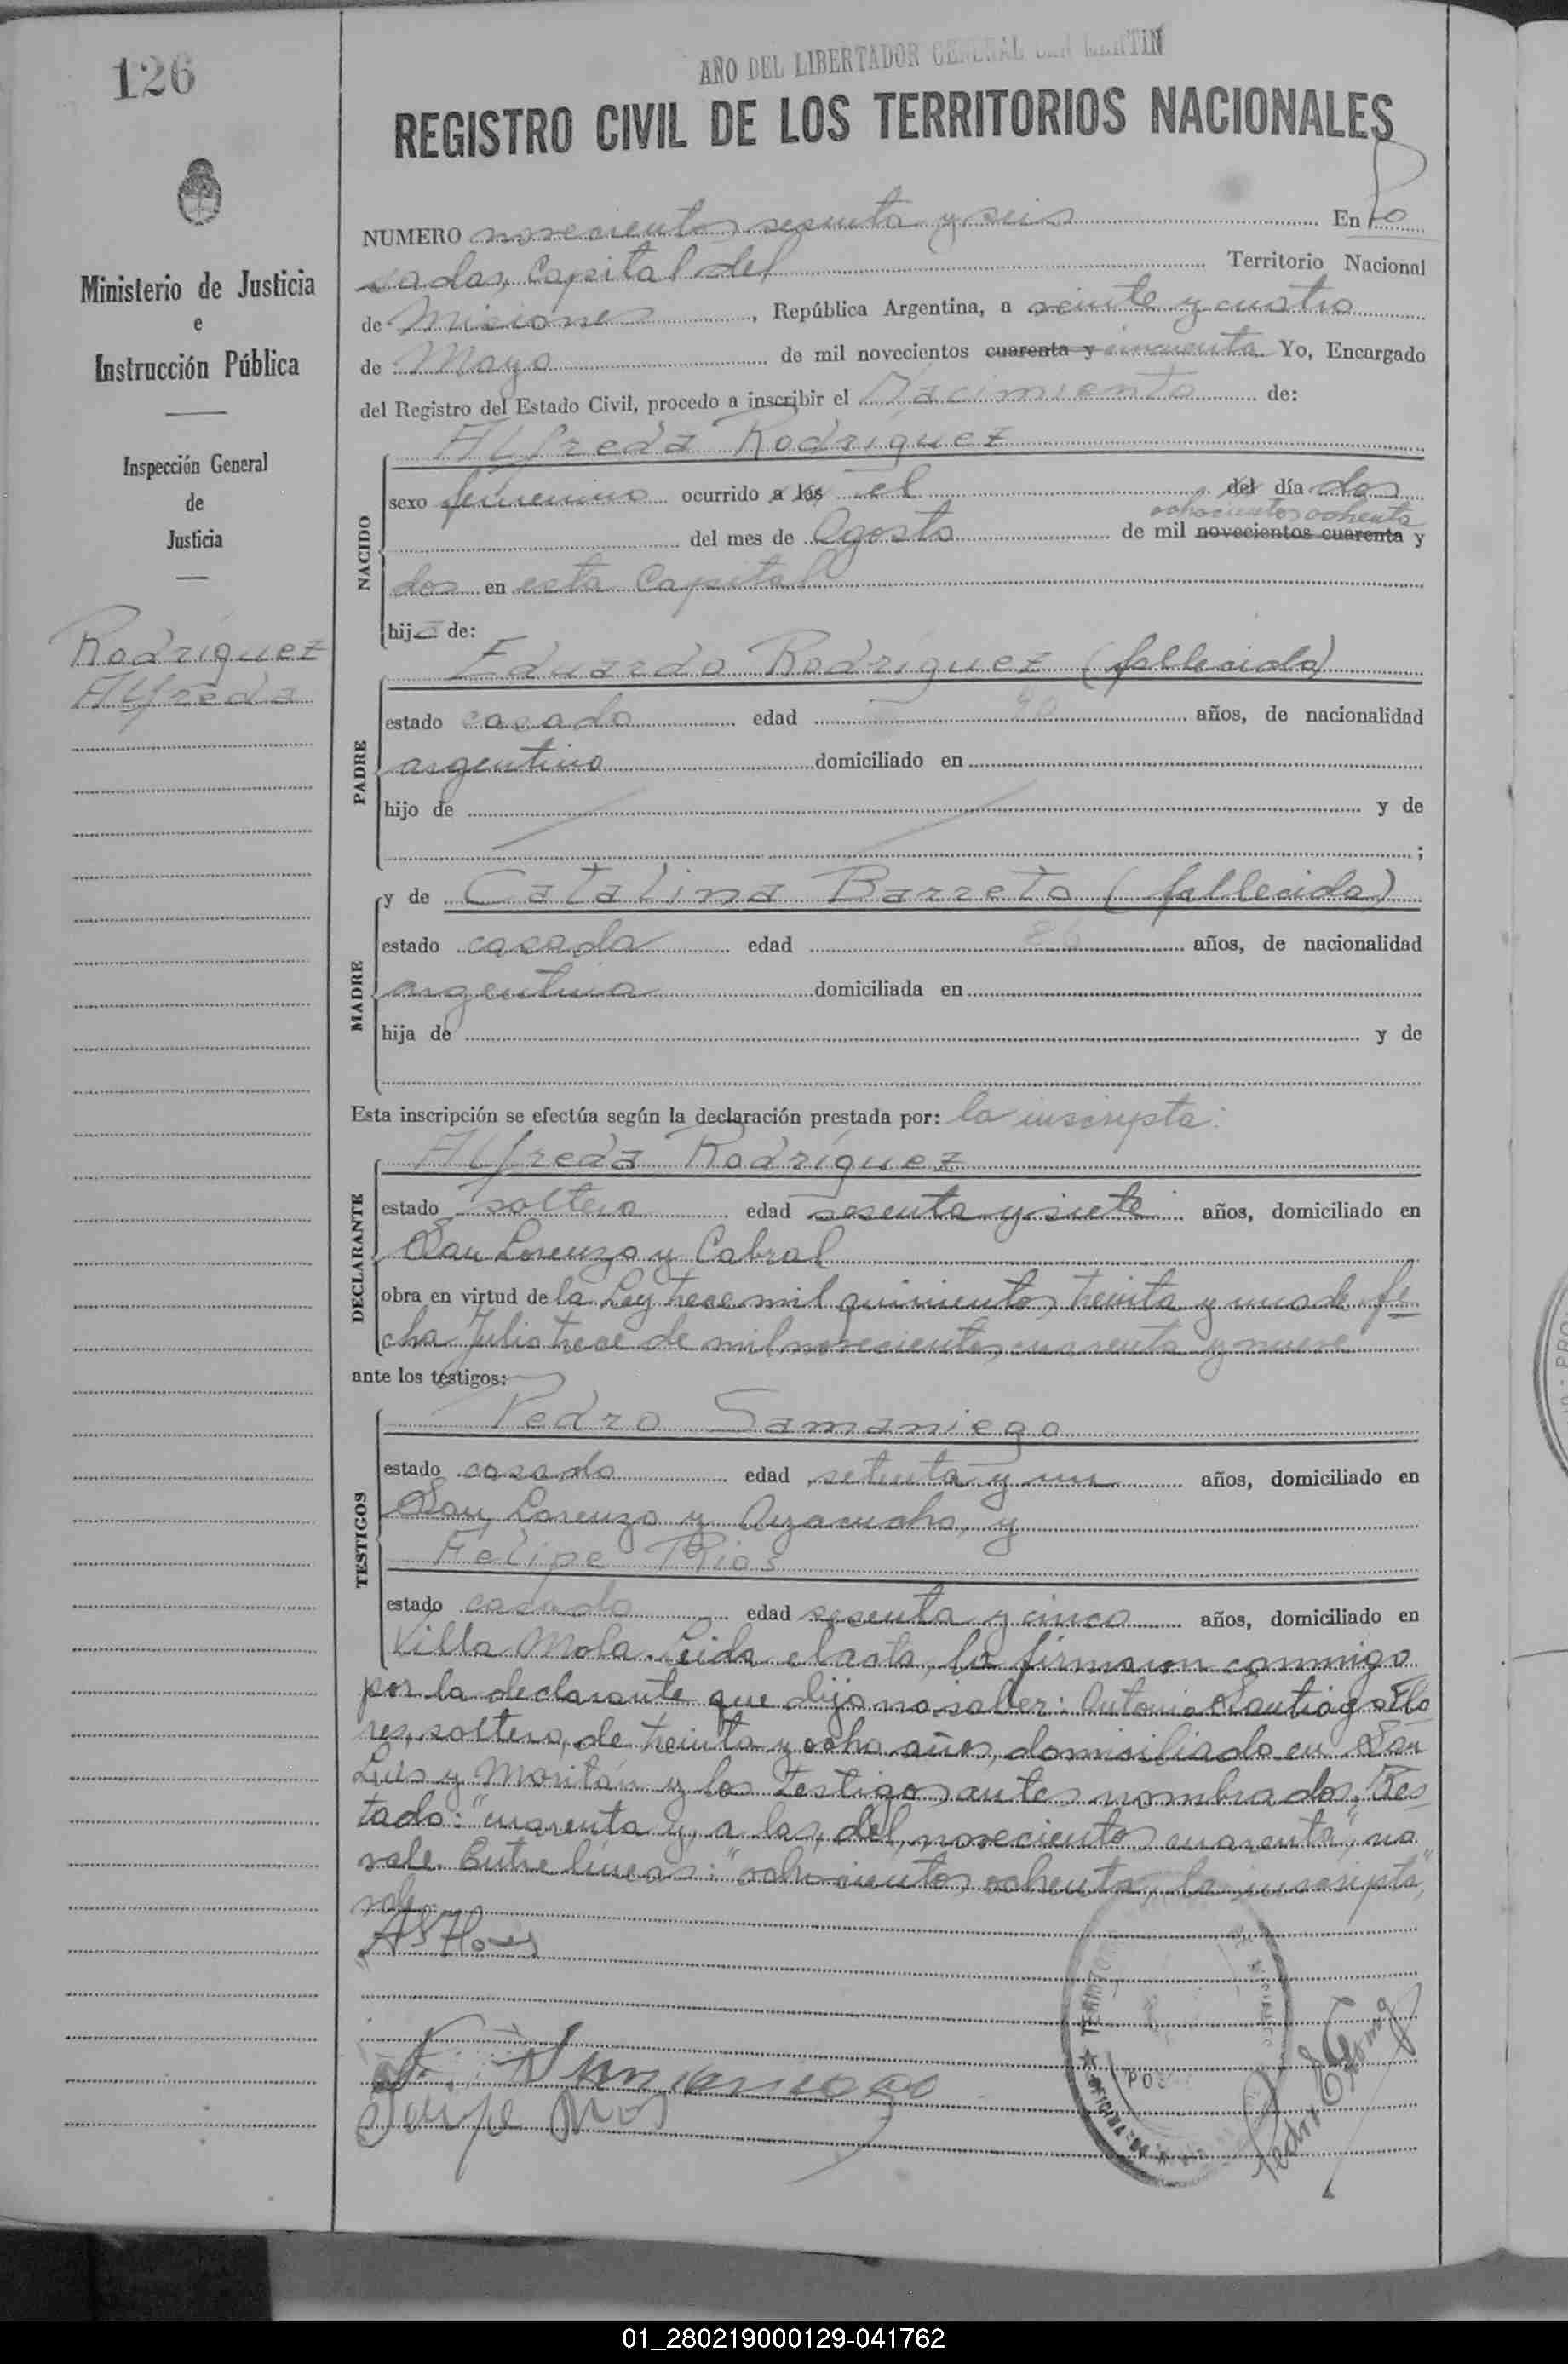 126
AÑO DEL LIBERTADOR GENERAL SAN MARTIN
REGISTRO CIVIL DE LOS TERRITORIOS NACIONALES
Ministerio de Justicia
e
Instrucción Pública
Inspección General
de
Justicia
Rodríguez
Alfreda
NUMERO novecientos sesenta y seis En Po
sadas, Capital del Territorio Nacional
de Misiones, República Argentina, a veinte y cuatro
de Mayo de mil novecientos cuarenta y cincuenta Yo, Encargado
del Registro del Estado Civil, procedo a inscribir el Nacimiento de:
NACIDO
Alfreda Rodríguez
sexo femenino ocurrido a las el del día dos
ochocientos ochenta
del mes de Agosto de mil novecientos cuarenta y
dos en esta Capital
hija de:
PADRE
Eduardo Rodríguez (fallecido)
estado casado edad años, de nacionalidad
argentino domiciliado en
hijo de y de
;
MADRE
y de Catalina Barreto (fallecida)
estado casada edad años, de nacionalidad
argentina domiciliada en
hija de y de
Esta inscripción se efectúa según la declaración prestada por: la inscripta:
DECLARANTE
Alfreda Rodríguez
estado soltera edad sesenta y siete años, domiciliado en
San Lorenzo y Cabral
obra en virtud de la Ley trece mil quinientos treinta y uno de fe-
cha Julio trece de mil novecientos cuarenta y nueve
ante los testigos:
TESTIGOS
Pedro Samaniego
estado casado edad setenta y un años, domiciliado en
San Lorenzo y Ayacucho, y
Felipe Rios
estado casado edad sesenta y cinco años, domiciliado en
Villa Mola. Leida el acta, la firmaron conmigo
por la declarante que dijo no saber: Antonio Santiago Flo
res, soltero, de treinta y ocho años, domiciliado en San
Luis y Moritán y los testigos antes nombrados. Tes-
tado: "cuarenta y, a las, del, novecientos cuarenta", no
vale. Entre líneas: "ochocientos ochenta, la inscripta",
vale.
AS Flores
P. Samaniego
Felipe Rios
01_280219000129-041762